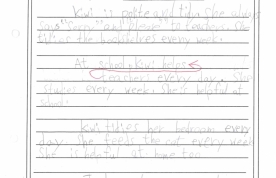 Kiwi is polite and tidy. She always
says "sorry" and "please" to teachers. She
tidies the bookshelves every week.
At school, Kiwi helps
teachers every day. She
every week. She's helpful at
school.
Kiwi tidies her bedroom every
day. She feeds the cat every week.
She is helpful at home too.